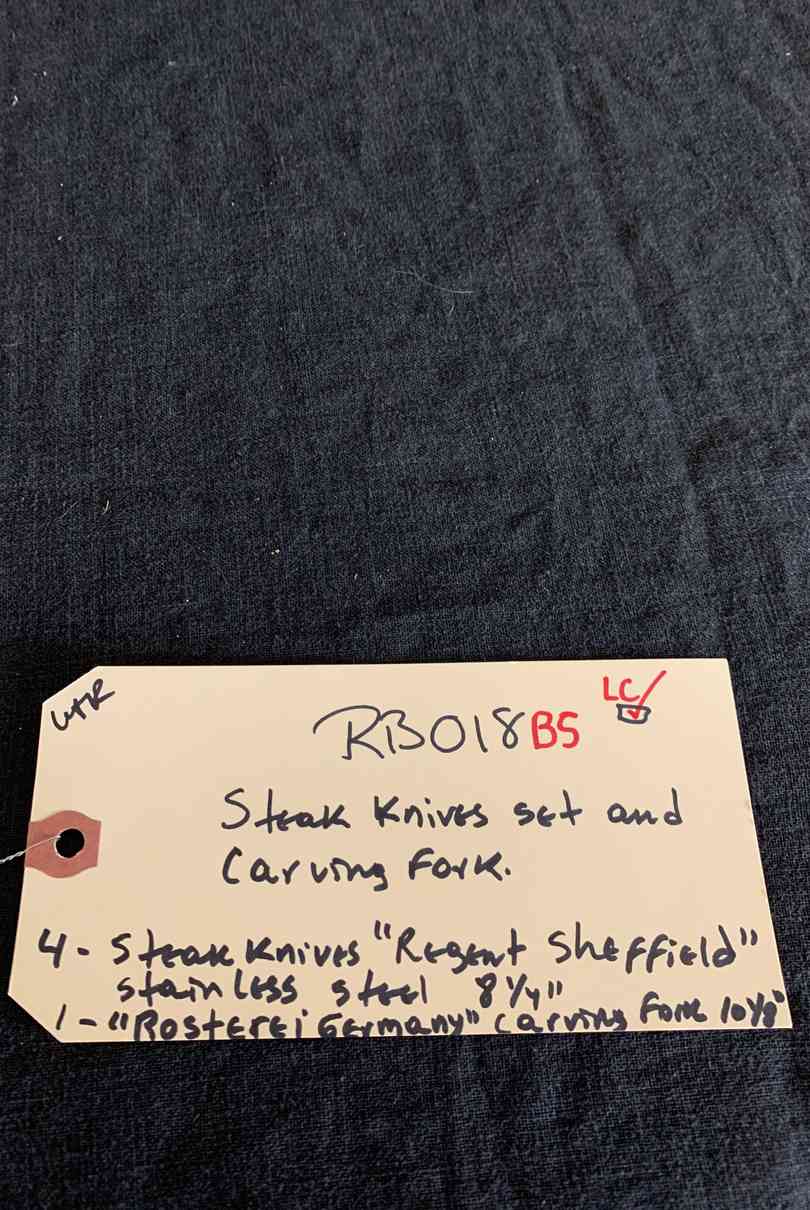 LC
RB018BS
Steak Knives set and
Carving Fork.
4 - Steak Knives "Regent Sheffield"
stainless steel 8 1/4"
1 - "Rosterei Germany" carving Fork 10 1/8"